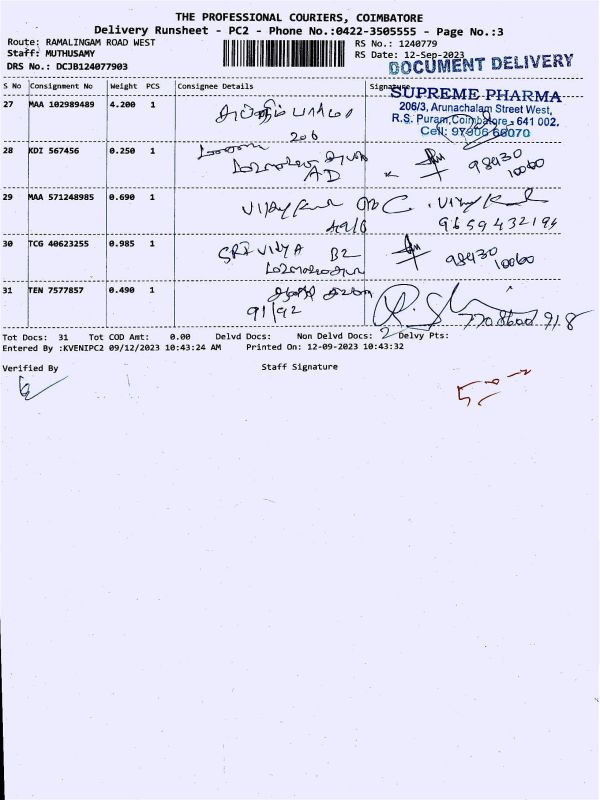 THE PROFESSIONAL COURIERS, COIMBATORE
Delivery Runsheet - PC2 - Phone No.:0422-3505555 - Page No.:3
Route: RAMALINGAM ROAD WEST RS No.: 1240779
Staff: MUTHUSAMY RS Date: 12-Sep-2023
DRS No.: DCJB124077903 DOCUMENT DELIVERY
S No Consignment No Weight PCS Consignee Details Signature
SUPREME PHARMA
27 MAA 102989489 4.200 1
206/3, Arunachalam Street West,
R.S. Puram, Coimbatore - 641 002.
206 Cell: 97906 66070
28 KDI 567456 0.250 1
AD 98430
10060
29 MAA 571248985 0.690 1
9659432194
30 TCG 40623255 0.985 1 SRI VIDYA B2 98430
10060
31 TEN 7577857 0.490 1
91/92
Tot Docs: 31 Tot COD Amt: 0.00 Delvd Docs: Non Delvd Docs: 2 Delvy Pts:
Entered By :KVENIPC2 09/12/2023 10:43:24 AM Printed On: 12-09-2023 10:43:32
Verified By Staff Signature